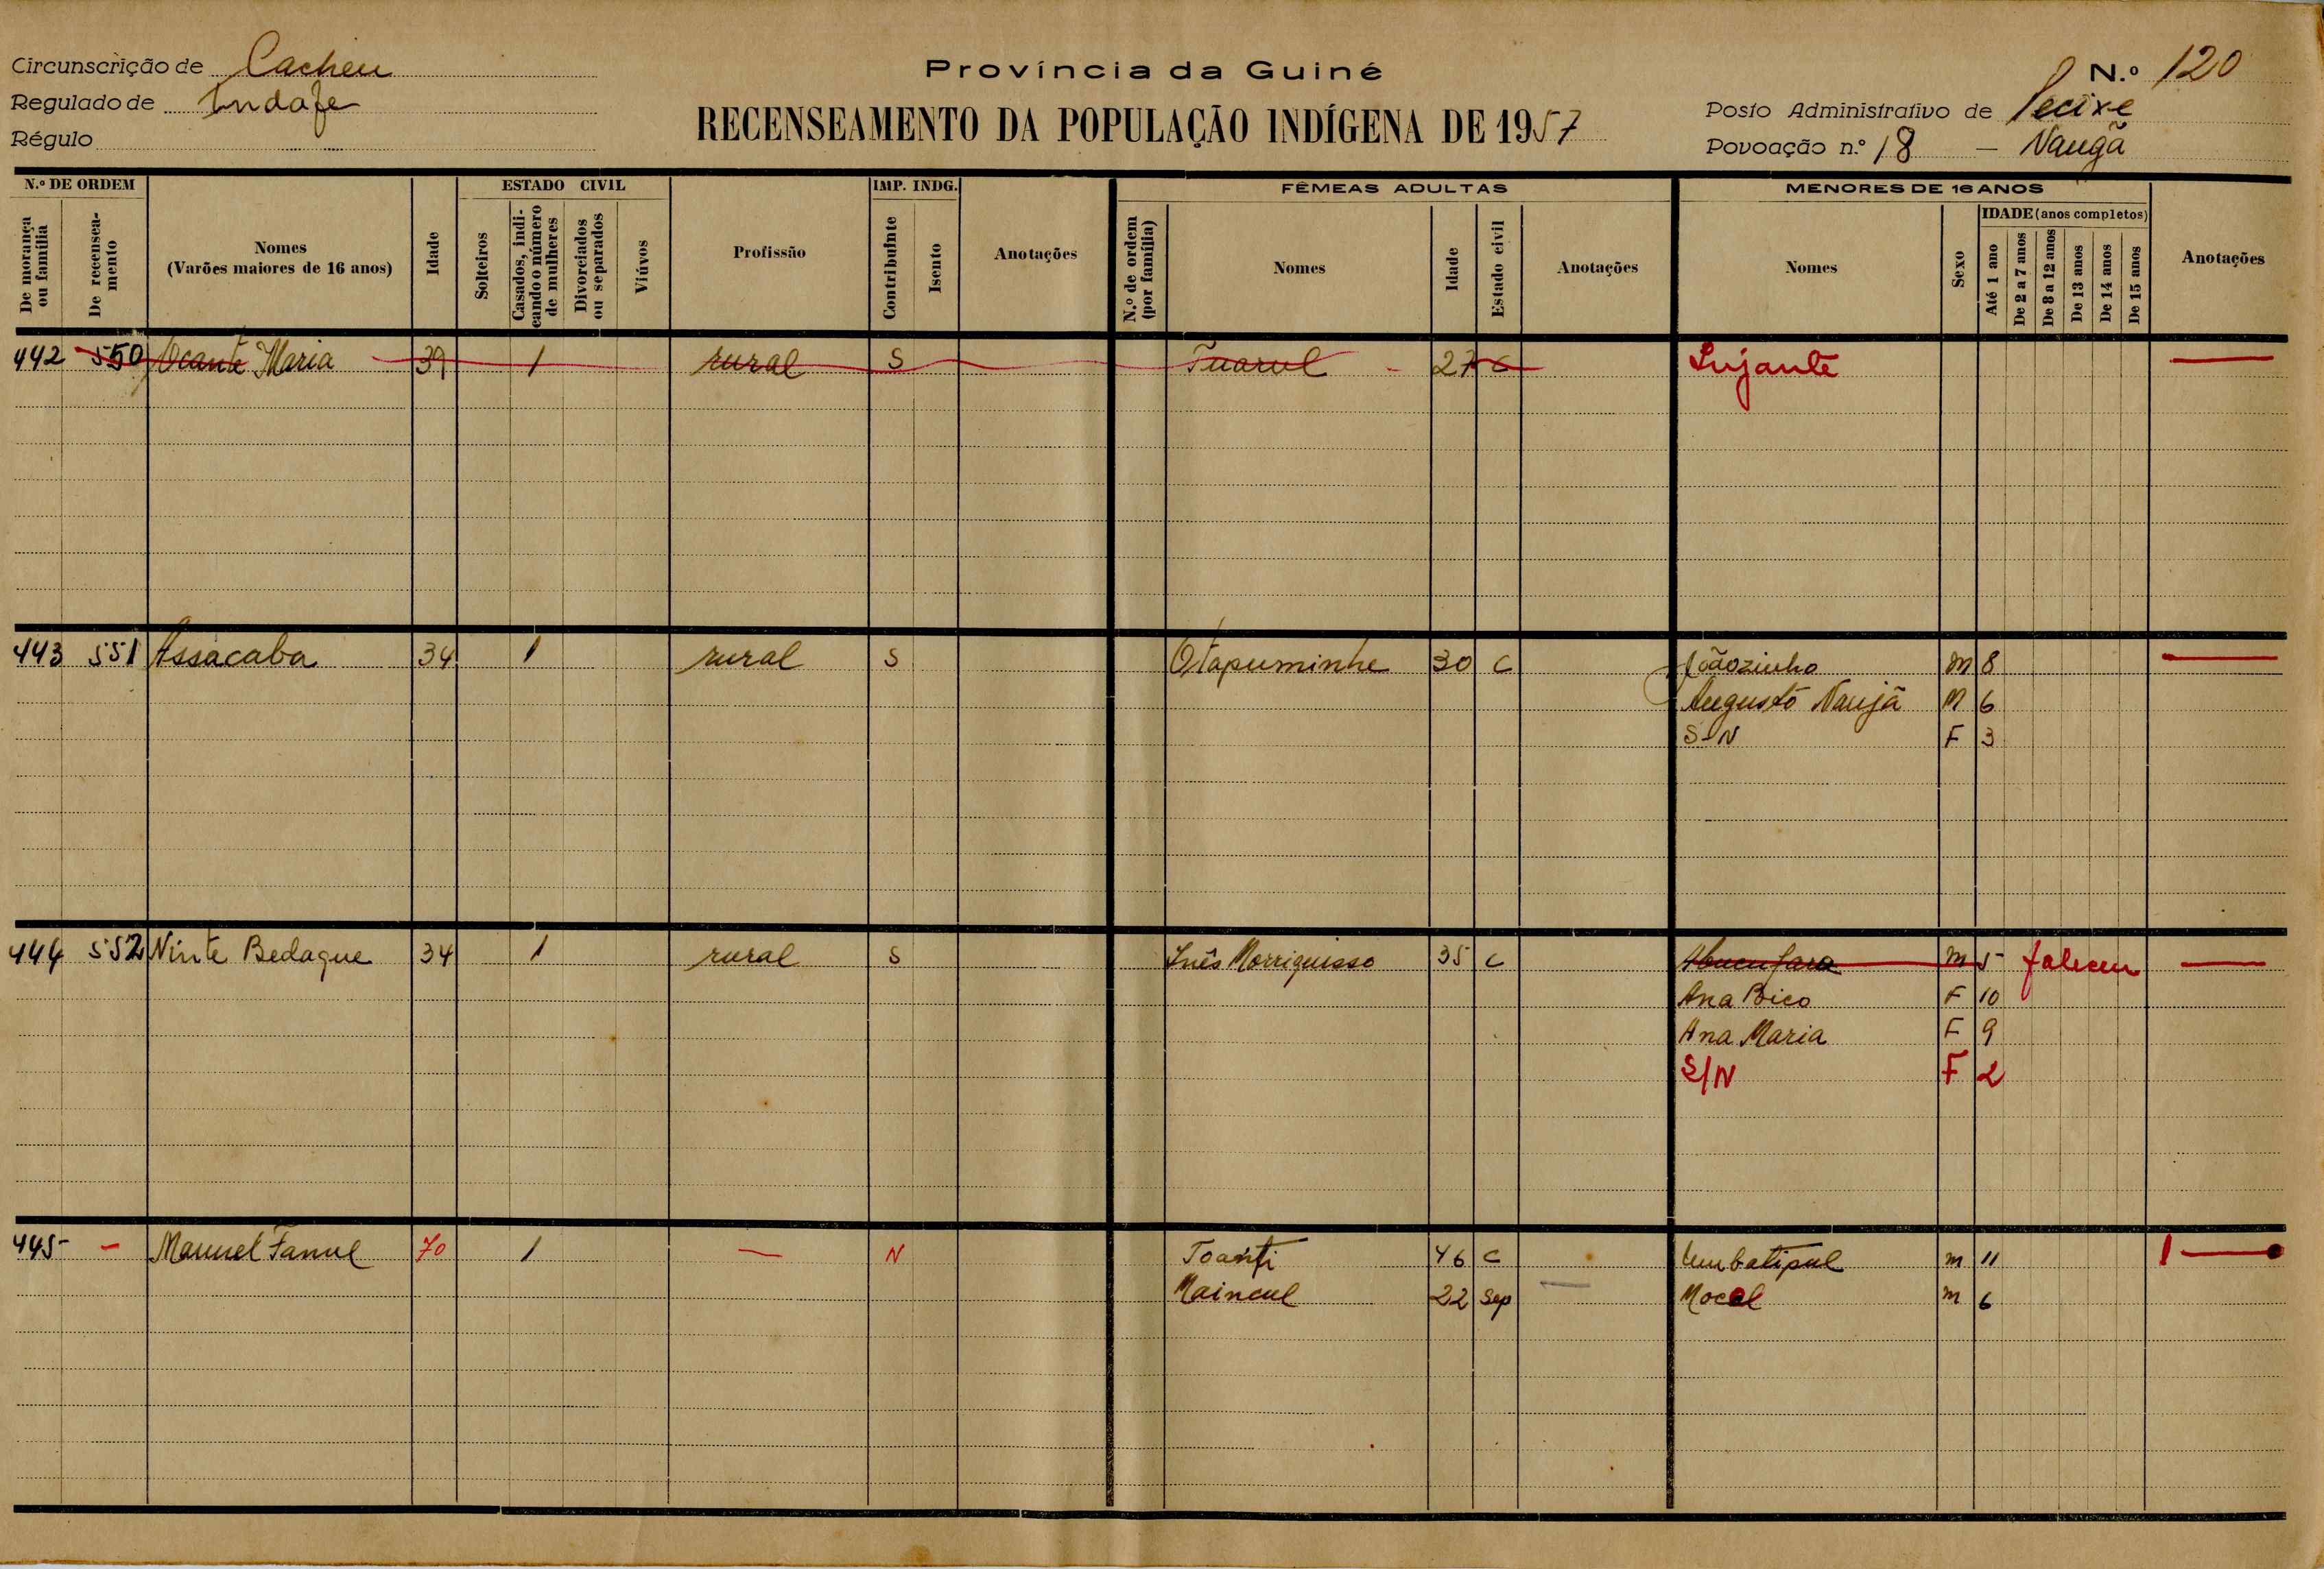 Circunscrição de Cacheu
Regulado de Indafe
Régulo
Província da Guiné
RECENSEAMENTO DA POPULAÇÃO INDÍGENA DE 1957
N.º 120
Posto Administrativo de Pecixe
Povoação n.º 18 — Naugã
N.º DE ORDEM
De morança ou família
De recensea-mento
Nomes
(Varões maiores de 16 anos)
Idade
ESTADO CIVIL
Solteiros
Casados, indi-cando o número de mulheres
Divorciados ou separados
Viúvos
Profissão
IMP. INDG.
Contribuinte
Isento
Anotações
FÊMEAS ADULTAS
N.º de ordem (por família)
Nomes
Idade
Estado civil
Anotações
MENORES DE 16 ANOS
Nomes
Sexo
IDADE (anos completos)
Até 1 ano
De 2 a 7 anos
De 8 a 12 anos
De 13 anos
De 14 anos
De 15 anos
Anotações
442 550 Ocante Maria 39 1 rural S Tuarul 27 C Sujante —
443 551 Assacaba 34 1 rural S Otapuminhe 30 C Joãozinho M 8 —
Augusto Naujã M 6
S-N F 3
444 552 Ninte Bedaque 34 1 rural S Inês Morriquisso 35 C Abucufara M 5 faleceu —
Ana Bico F 10
Ana Maria F 9
S/N F 2
445 — Manuel Fanul 70 1 — N Toanfi 46 C Umbatipul M 11 1 —
Maincul 22 Sep Mocal M 6